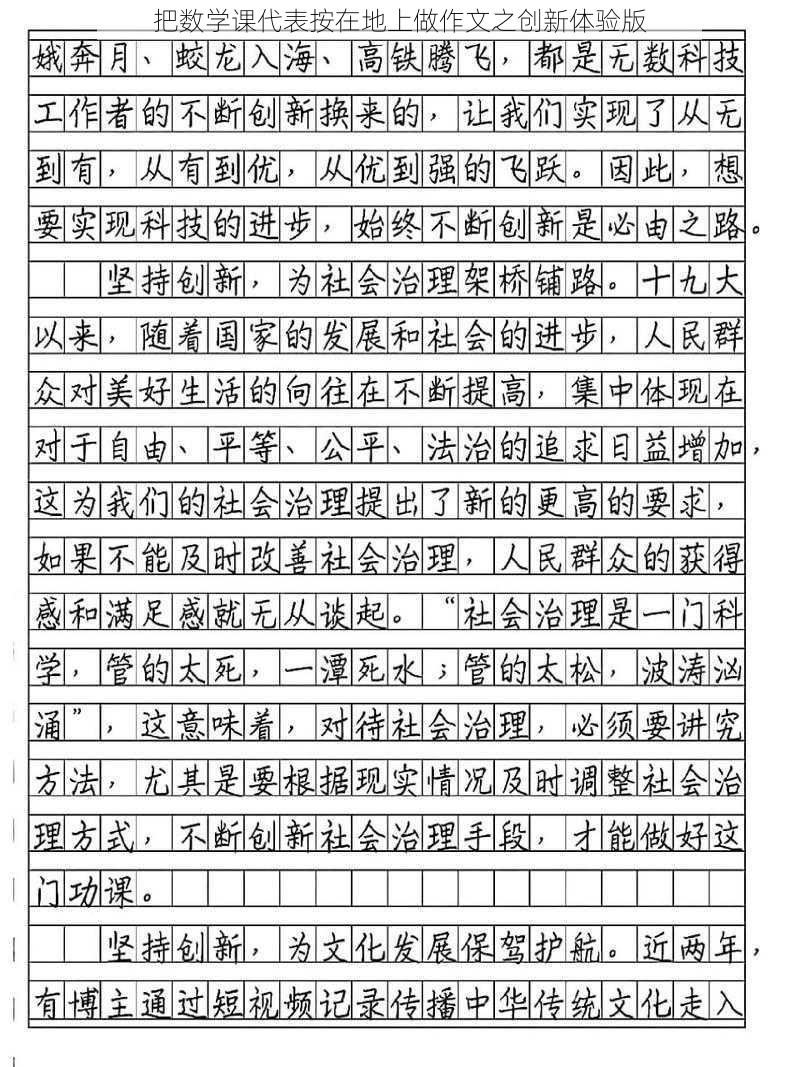 把数学课代表按在地上做作文之创新体验版
娥奔月、蛟龙入海、高铁腾飞，都是无数科技
工作者的不断创新换来的，让我们实现了从无
到有，从有到优，从优到强的飞跃。因此，想
要实现科技的进步，始终不断创新是必由之路。
坚持创新，为社会治理架桥铺路。十九大
以来，随着国家的发展和社会的进步，人民群
众对美好生活的向往在不断提高，集中体现在
对于自由、平等、公平、法治的追求日益增加，
这为我们的社会治理提出了新的更高的要求，
如果不能及时改善社会治理，人民群众的获得
感和满足感就无从谈起。“社会治理是一门科
学，管的太死，一潭死水；管的太松，波涛汹
涌”，这意味着，对待社会治理，必须要讲究
方法，尤其是要根据现实情况及时调整社会治
理方式，不断创新社会治理手段，才能做好这
门功课。
坚持创新，为文化发展保驾护航。近两年，
有博主通过短视频记录传播中华传统文化走入